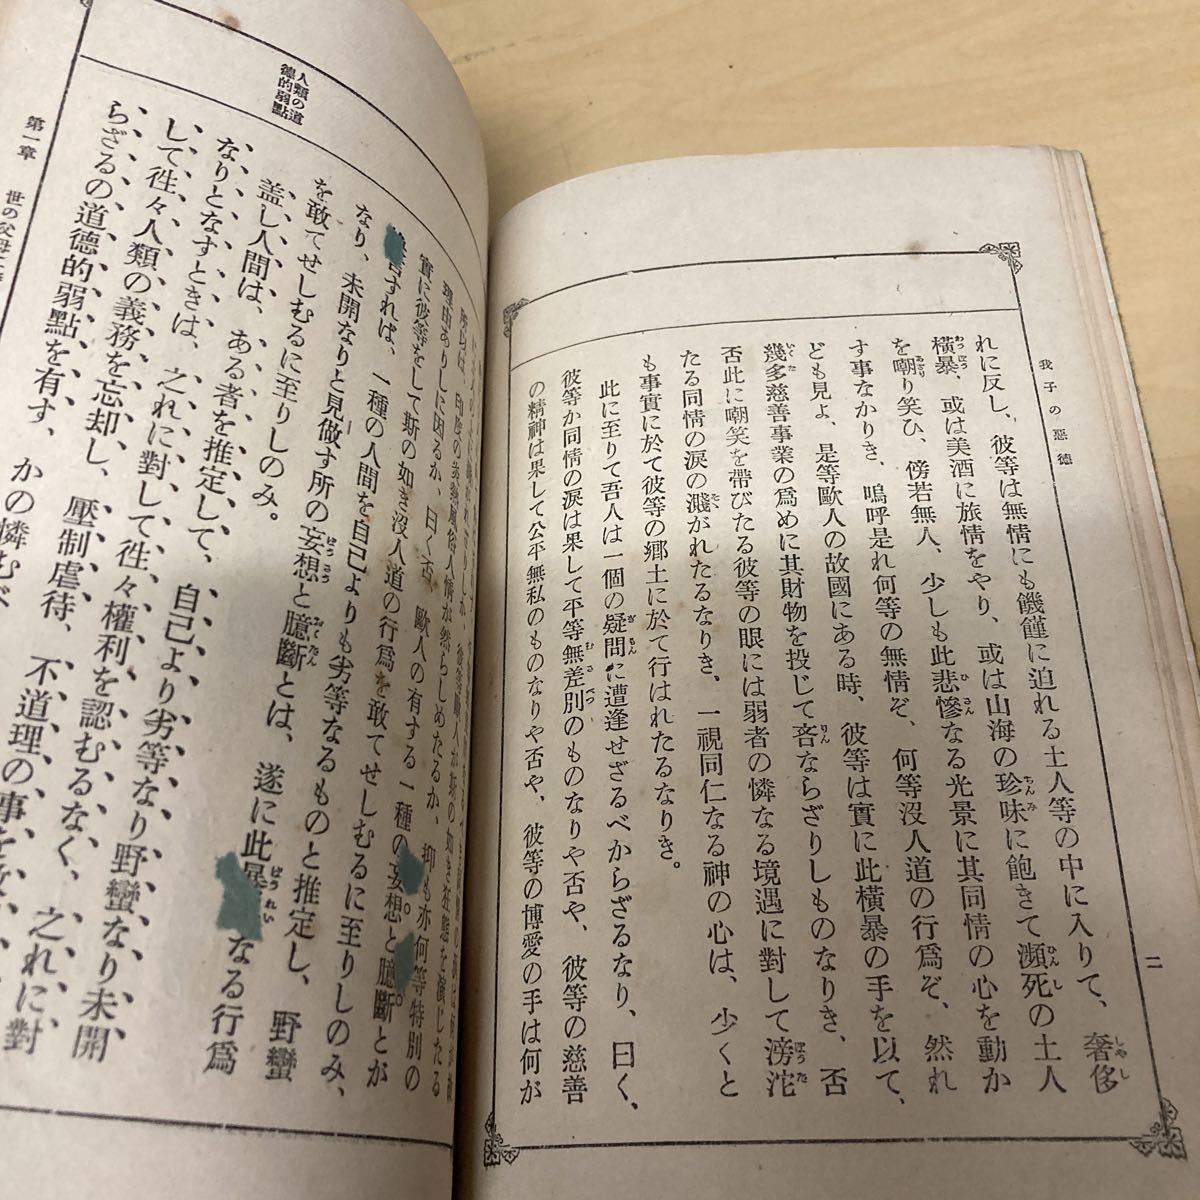 我子の惡德
二
れに反し、彼等は無情にも饑饉に迫れる土人等の中に入りて、奢侈
橫暴、或は美酒に旅情をやり、或は山海の珍味に飽きて瀕死の土人
を嘲り笑ひ、傍若無人、少しも此悲慘なる光景に其同情の心を動か
す事なかりき、嗚呼是れ何等の無情ぞ、何等沒人道の行爲ぞ、然れ
ども見よ、是等歐人の故國にある時、彼等は實に此橫暴の手を以て、
幾多慈善事業の爲めに其財物を投じて吝ならざりしものなりき、否
否此に嘲笑を帶びたる彼等の眼には弱者の憐なる境遇に對して滂沱
たる同情の淚の濺がれたるなりき、一視同仁なる神の心は、少くと
も事實に於て彼等の鄕土に於て行はれたるなりき。
此に至りて吾人は一個の疑問に遭逢せざるべからざるなり、曰く、
彼等か同情の淚は果して平等無差別のものなりや否や、彼等の慈善
の精神は果して公平無私のものなりや否や、彼等の博愛の手は何が
人類の道
德的弱點
理由ありしに因るか、曰く否、
實に彼等をして斯の如き沒人道の行爲を敢てせしむるに至りしのみ、
すれば、一種の人間を自己よりも劣等なるものと推定し、野蠻
なり、未開なりと見做す所の妄想と臆斷とは、遂に此暴
なる行爲
を敢てせしむるに至りしのみ。
蓋し人間は、ある者を推定して、自己より劣等なり野蠻なり未開
なりとなすときは、之れに對して往々權利を認むるなく、之れに對
して往々人類の義務を忘却し、壓制虐待、不道理の事を
らざるの道德的弱點を有す、かの憐むべ
第一章　世の父母